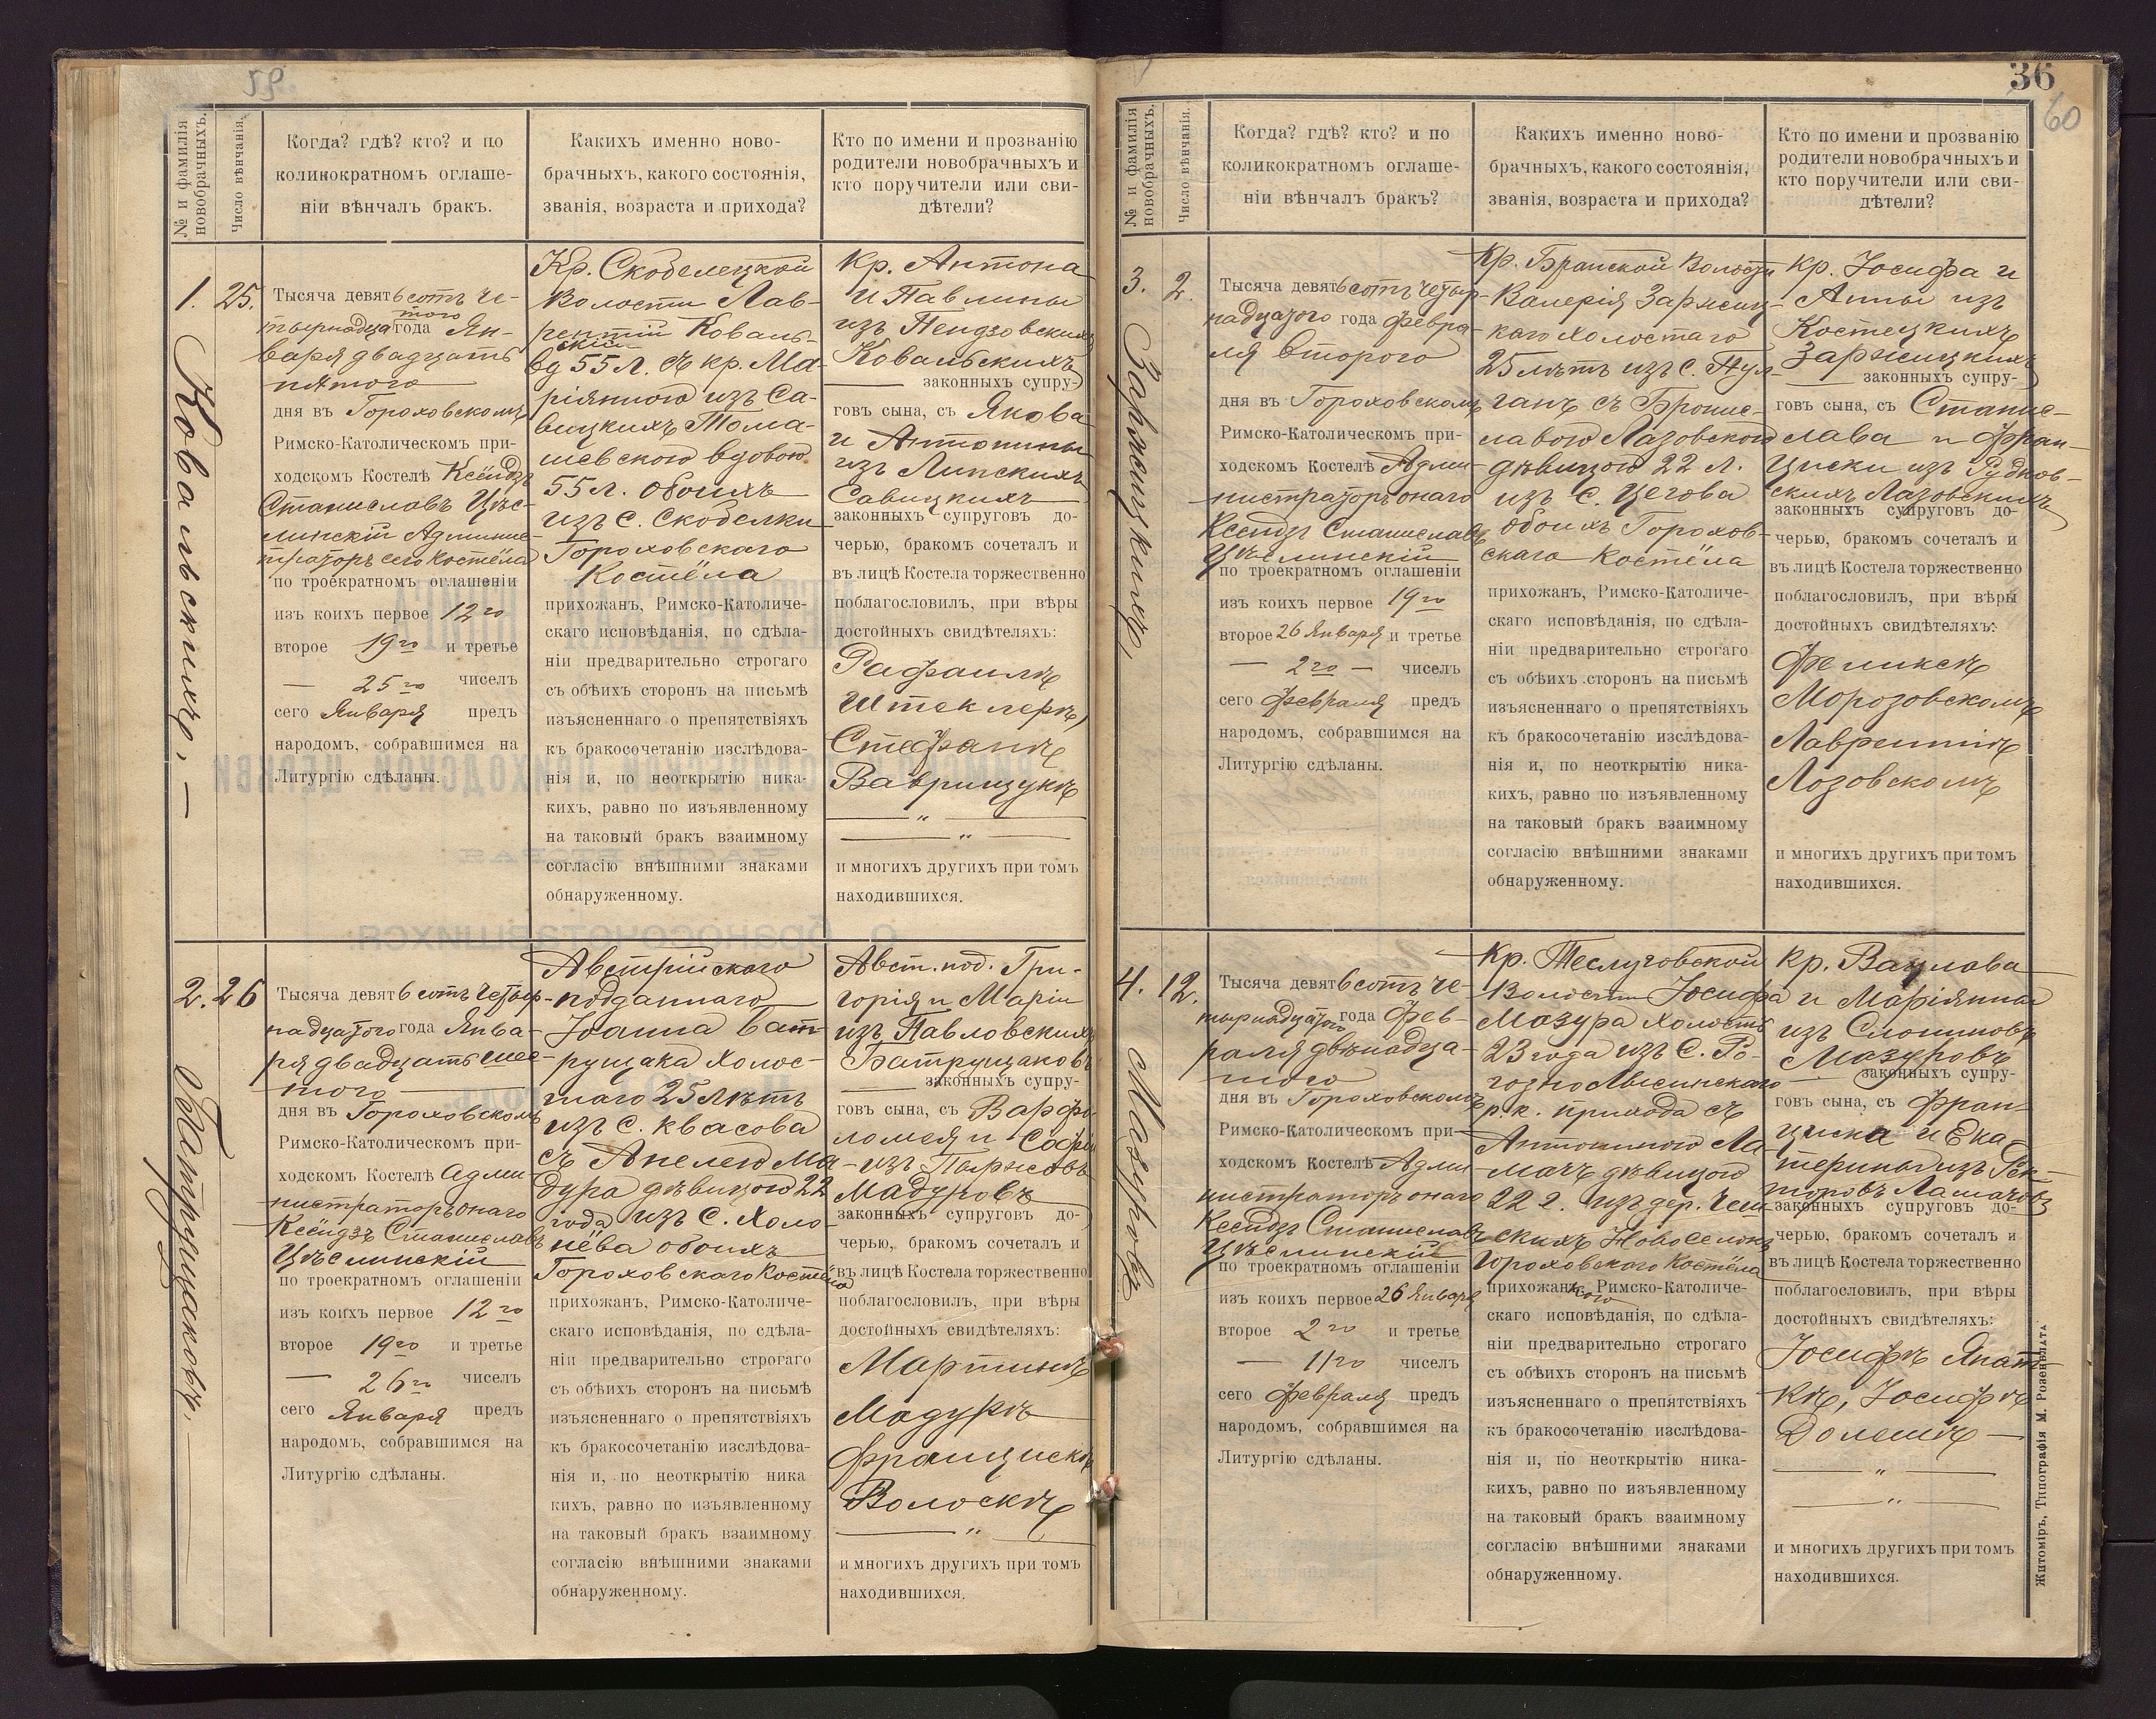 59.
№ и фамилія новобрачныхъ.
Число вѣнчанія.
Когда? гдѣ? кто? и по
коликократномъ оглаше-
ніи вѣнчалъ бракъ.
Какихъ именно ново-
брачныхъ, какого состоянія,
званія, возраста и прихода?
Кто по имени и прозванію
родители новобрачныхъ и
кто поручители или сви-
дѣтели?
1.
25.
Ковальскихъ,
Тысяча девятьсотъ че-
тырнадцатого года Ян-
варя двадцать
пятого
дня въ Гороховскомъ
Римско-Католическомъ при-
ходскомъ Костелѣ Ксёндзъ
Станиславъ Цѣс-
линскій Админис-
траторъ сего Костёла
по троекратномъ оглашеніи
изъ коихъ первое 12го
второе 19го и третье
25го чиселъ
сего Января предъ
народомъ, собравшимся на
Литургію сдѣланы.
Кр. Скобелецкой
Волости Лав-
рентій Коваль-
скій
вд 55 л. съ кр. Ма-
ріянною изъ Са-
вицкихъ Тома-
шевскою вдовою
55 л. обоихъ
изъ с. Скобелки
Гороховскаго
Костёла
прихожанъ, Римско-Католиче-
скаго исповѣданія, по сдѣла-
ніи предварительно строгаго
съ обѣихъ сторонъ на письмѣ
изъясненнаго о препятствіяхъ
къ бракосочетанію изслѣдова-
нія и, по неоткрытію ника-
кихъ, равно по изъявленному
на таковый бракъ взаимному
согласію внѣшними знаками
обнаруженному.
Кр. Антона
и Павлины
изъ Пендзовскихъ
Ковальскихъ
законныхъ супру-
говъ сына, съ Якова
и Антонины
изъ Липскихъ
Савицкихъ
законныхъ супруговъ до-
черью, бракомъ сочеталъ и
въ лицѣ Костела торжественно
поблагословилъ, при вѣры
достойныхъ свидѣтеляхъ:
Рафаилѣ
Штеклерѣ,
Стефанѣ
Ваврищукѣ
и многихъ другихъ при томъ
находившихся.
2.
26
Батрущаковъ.
Тысяча девятьсотъ четыр-
надцатого года Янва-
ря двадцать шес-
того
дня въ Гороховскомъ
Римско-Католическомъ при-
ходскомъ Костелѣ Адми-
нистраторъ онаго
Ксёндзъ Станиславъ
Цѣслинскій
по троекратномъ оглашеніи
изъ коихъ первое 12го
второе 19го и третье
26го чиселъ
сего Января предъ
народомъ, собравшимся на
Литургію сдѣланы.
Австрійского
подданнаго
Іоанна Бат-
рущака холос-
таго 25 лѣтъ
изъ с. Квасова
съ Анелею Ма-
дура дѣвицою 22
года изъ с. Холо-
нёва обоихъ
Гороховскаго Костёла
прихожанъ, Римско-Католиче-
скаго исповѣданія, по сдѣла-
ніи предварительно строгаго
съ обѣихъ сторонъ на письмѣ
изъясненнаго о препятствіяхъ
къ бракосочетанію изслѣдова-
нія и, по неоткрытію ника
кихъ, равно по изъявленному
на таковый бракъ взаимному
согласію внѣшними знаками
обнаруженному.
Авст. под. Гри-
горія и Маріи
изъ Павловскихъ
Батрущаковъ
законныхъ супру-
говъ сына, съ Варфо-
ломея и Софіи
изъ
Мадуровъ
законныхъ супруговъ до-
черью, бракомъ сочеталъ и
въ лицѣ Костела торжественно
поблагословилъ, при вѣры
достойныхъ свидѣтеляхъ:
Мартинѣ
Мадурѣ
Францискѣ
Волоскѣ
и многихъ другихъ при томъ
находившихся.
36
60
№ и фамилія новобрачныхъ.
Число вѣнчанія.
Когда? гдѣ? кто? и по
коликократномъ оглаше-
ніи вѣнчалъ бракъ?
Какихъ именно ново-
брачныхъ, какого состоянія,
званія, возраста и прихода?
Кто по имени и прозванію
родители новобрачныхъ и
кто поручители или сви-
дѣтели?
3.
2.
Заржицкихъ,
Тысяча девятьсотъ четыр-
надцатого года Февра-
ля второго
дня въ Гороховскомъ
Римско-Католическомъ при-
ходскомъ Костелѣ Адми-
нистраторъ онаго
Ксендзъ Станиславъ
Цѣслинскій
по троекратномъ оглашеніи
изъ коихъ первое 19го
второе 26 Января и третье
2го чиселъ
сего Февраля предъ
народомъ, собравшимся на
Литургію сдѣланы.
Кр. Бранской Волости
Валерія Заржиц-
каго холостаго
25 лѣтъ изъ с. Пул-
ганъ съ Бронис-
лавою Лазовскою
дѣвицою 22 л.
изъ с. Цегова
обоихъ Горохов-
скаго Костёла
прихожанъ, Римско-Католиче-
скаго исповѣданія, по сдѣла-
ніи предварительно строгаго
съ обѣихъ сторонъ на письмѣ
изъясненнаго о препятствіяхъ
къ бракосочетанію изслѣдова-
нія и, по неоткрытію ника-
кихъ, равно по изъявленному
на таковый бракъ взаимному
согласію внѣшними знаками
обнаруженному.
Кр. Іосифа и
Анны изъ
Костецкихъ
Заржицкихъ
законныхъ супру-
говъ сына, съ Станис-
лава и Фран-
циски изъ Рудков-
скихъ Лазовскихъ
законныхъ супруговъ до-
черью, бракомъ сочеталъ и
въ лицѣ Костела торжественно
поблагословилъ, при вѣры
достойныхъ свидѣтеляхъ:
Феликсѣ
Морозовскомъ
Лаврентіѣ
Лозовскомъ
и многихъ другихъ при томъ
находившихся.
4.
12.
Мазуровъ
Тысяча девятьсотъ че-
тырнадцатого года Фев-
раля двѣнадца-
того
дня въ Гороховскомъ
Римско-Католическомъ при-
ходскомъ Костелѣ Адми-
нистраторъ онаго
Ксендзъ Станиславъ
Цѣслинскій
по троекратномъ оглашеніи
изъ коихъ первое 26 Января
второе 2го и третье
11го чиселъ
сего Февраля предъ
народомъ, собравшимся на
Литургію сдѣланы.
Кр. Теслуговской
Волости Іосифа
Мазура холостъ
23 года изъ с. Ро-
гозно
р.к. прихода съ
Антониною Ла-
мачъ дѣвицою
22 г. изъ дер. Чеш-
скихъ Новоселокъ
Гороховского Костёла
прихожанкою, Римско-Католиче-
скаго исповѣданія, по сдѣла-
ніи предварительно строгаго
съ обѣихъ сторонъ на письмѣ
изъясненнаго о препятствіяхъ
къ бракосочетанію изслѣдова-
нія и, по неоткрытію ника-
кихъ, равно по изъявленному
на таковый бракъ взаимному
согласію внѣшними знаками
обнаруженному.
Кр. Вацлава
и Маріянны
изъ Слонимовъ
Мазуровъ
законныхъ супру-
говъ сына, съ Фран-
циска и Ека-
терины изъ Рек-
торовъ Ламачовъ
законныхъ супруговъ до-
черью, бракомъ сочеталъ и
въ лицѣ Костела торжественно
поблагословилъ, при вѣры
достойныхъ свидѣтеляхъ:
Іосифѣ Янат-
кѣ, Іосифѣ
Долешѣ
и многихъ другихъ при томъ
находившихся.
Житоміръ, Типографія М. Розенблата